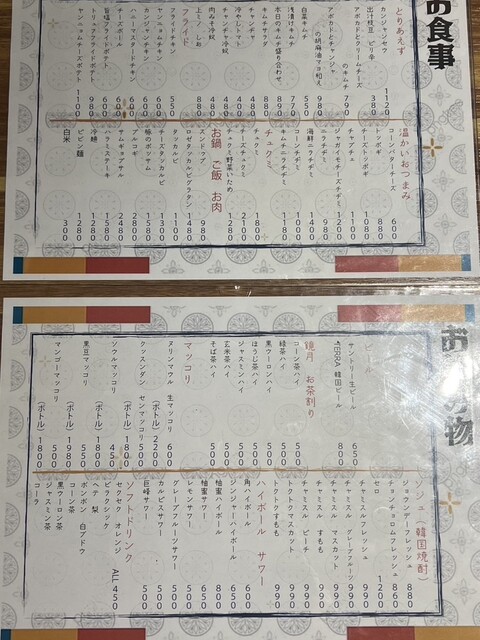 お食事
とりあえず
カンジャンセウ 1120
出汁枝豆 ピリ辛 380
アボカドとクリームチーズ
のキムチ 790
アボカドとチャンジャ
の胡麻油マヨ和え 980
白菜キムチ 550
浅漬けキムチ 770
本日のキムチ盛り合わせ 890
キムチサキ
チャンジャ 480
冷やしトマト 480
チャンヂャ冷奴 480
肉みそ冷奴 480
上ミノ しお 880
フライド
フライドチキン 550
ヤンニョムチキン 600
カンジャンチキン 600
ハニーマスタードチキン 600
チーズボール 600
旨塩フライドポテト
ヤンニョムチーズポテト 1100
温かいおつまみ
コーンバターチーズ 600
トッポギ 880
チーズトッポギ 1080
チャプチェ 1100
ジャガイモチーズチヂミ 1200
ニラチヂミ 980
海鮮ニラチヂミ 1400
コーンチヂミ 1000
キムチニラチヂミ 1180
チュクミ
チュクミ 1800
チーズチュクミ 2100
チュクミ 野菜いため 1280
お鍋 ご飯 お肉
スンドゥブ 980
ロゼタッカルビグラタン 1480
タッカルビ 1100
チーズタッカルビ 1300
プルコギ
極のポッサム 1580
サムギョプサル 2800
ハラミステーキ 2480
冷麺 1580
ビビン麺 1280
白米 300
ビール
サントリー生ビール 650
TERRA 韓国ビール 800
鏡月 お茶割り
コーン茶ハイ 500
緑茶ハイ 500
黒ウーロンハイ 500
ほうじ茶ハイ 500
ジャスミンハイ 500
玄米茶ハイ 500
そば茶ハイ 500
マッコリ
ヌリンマウル 生マッコリ 600
(ボトル) 2200
クッスンダン センマッコリ 500
(ボトル) 1800
ソウルマッコリ 450
(ボトル) 1800
黒豆マッコリ 550
(ボトル) 1980
マンゴーマッコリ 500
(ボトル) 1800
韓国焼酎
ジョウンデーフレッシュ 880
チョンチョロムフレッシュ 860
セロ 1200
チャミスルフレッシュ 990
チャミスル グレープフルーツ 990
チャミスル マスカット 990
チャミスル すもも 990
チャミスル ピーチ 990
マスカット 990
すもも 990
ハイボール サワー
角ハイボール 600
ジンジャーハイボール 650
柚蜜ハイボール 800
柚蜜サワー 650
レモンサワー 500
グレープフルーツサワー 500
カルピスサワー 500
巨峰サワー 500
ソフトドリンク
ALL 450
セクセク オレンジ
ピラクシッケ
ヘテ 梨
ボンボン 白ブドウ
コーン茶
黒ウーロン茶
ジャスミン茶
コーラ